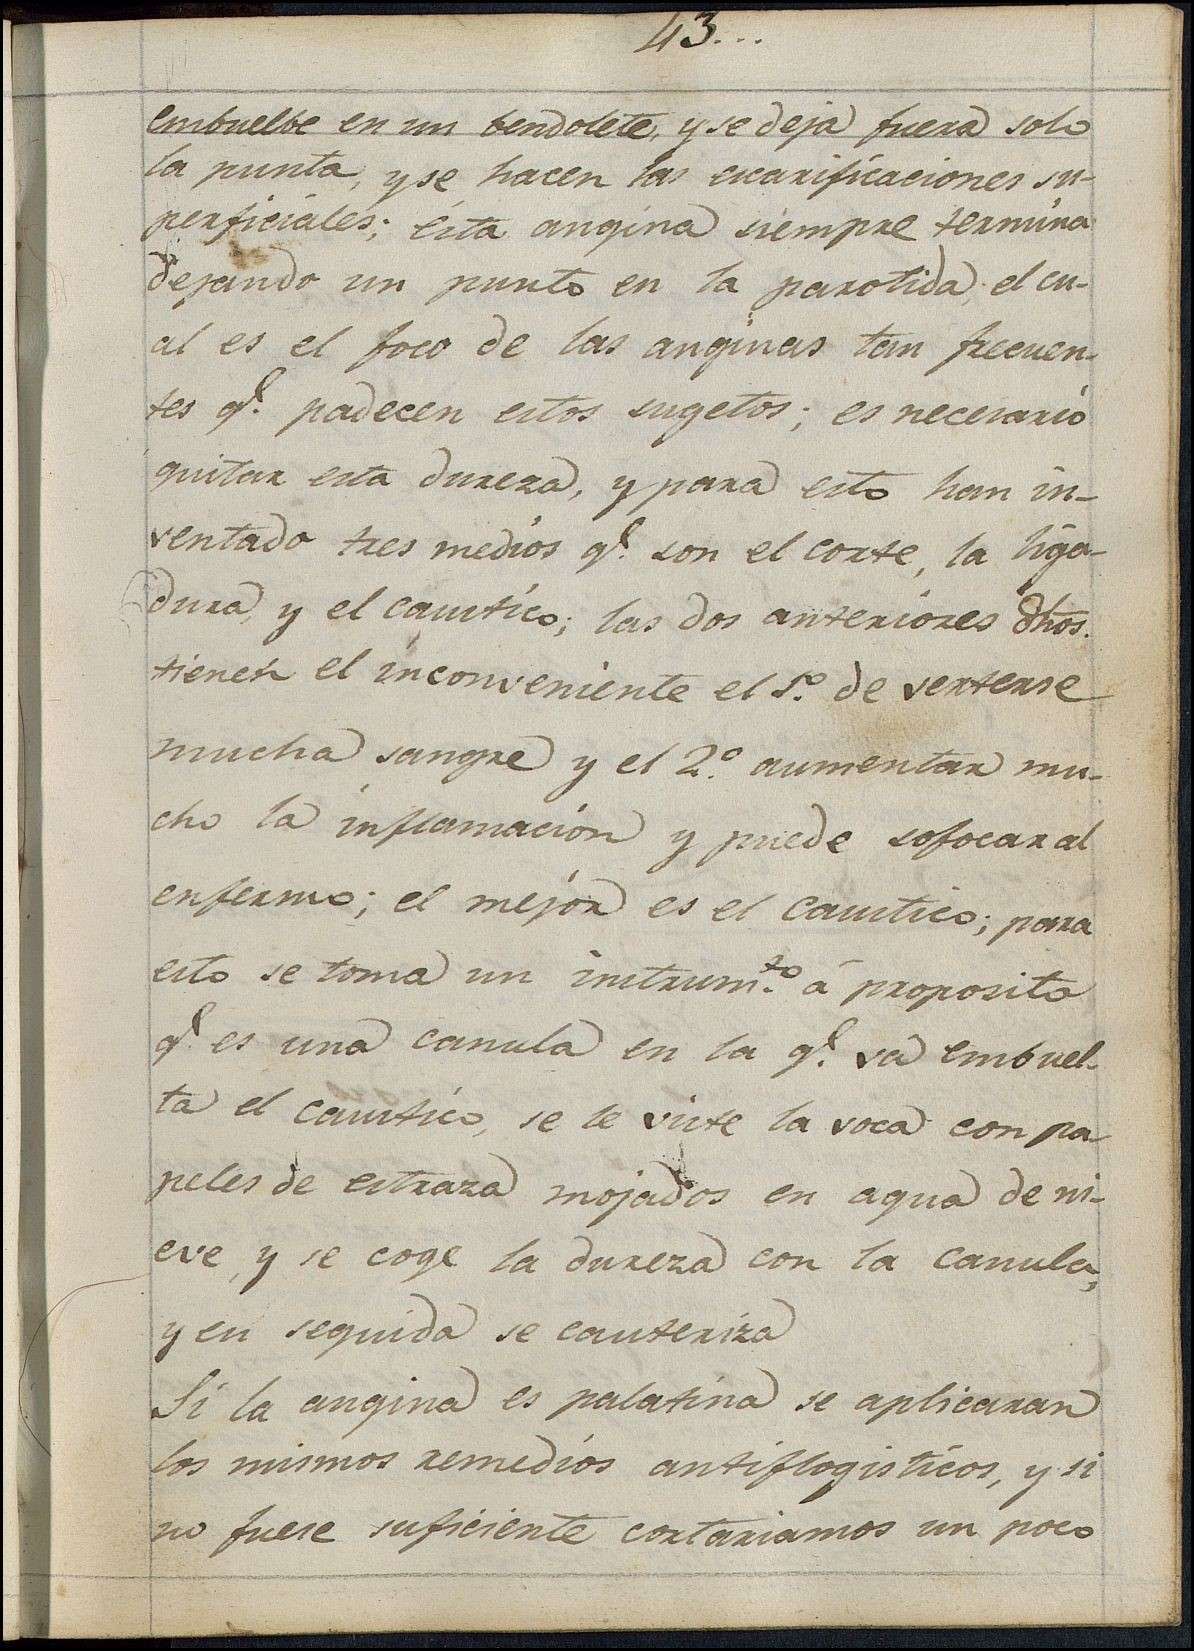 43...
embuelbe en un bendolete, y se deja fuera solo
la punta, y se hacen las escarificaciones su-
perficiales; ésta angina siempre termina
dejando un punto en la parotida, el cu-
al es el foco de las anginas tan frecuen-
tes q.e padecen estos sugetos; es necesario
quitar esta dureza, y para esto han in-
ventado tres medios q.e son el corte, la liga-
dura, y el caustico; las dos anteriores dhos.
tienen el inconveniente el 1.o de verterse
mucha sangre y el 2.o aumentar mu-
cho la inflamacion y puede sofocar al
enfermo; el mejor es el caustico; para
esto se toma un instrum.to á proposito
q.e es una canula en la q.e va embuel-
ta el caustico, se le viste la voca con pa-
peles de estraza mojados en agua de ni-
eve, y se coge la dureza con la canula,
y en seguida se cauteriza
Si la angina es palatina se aplicaran
los mismos remedios antiflogisticos, y si
no fuese suficiente cortariamos un poco